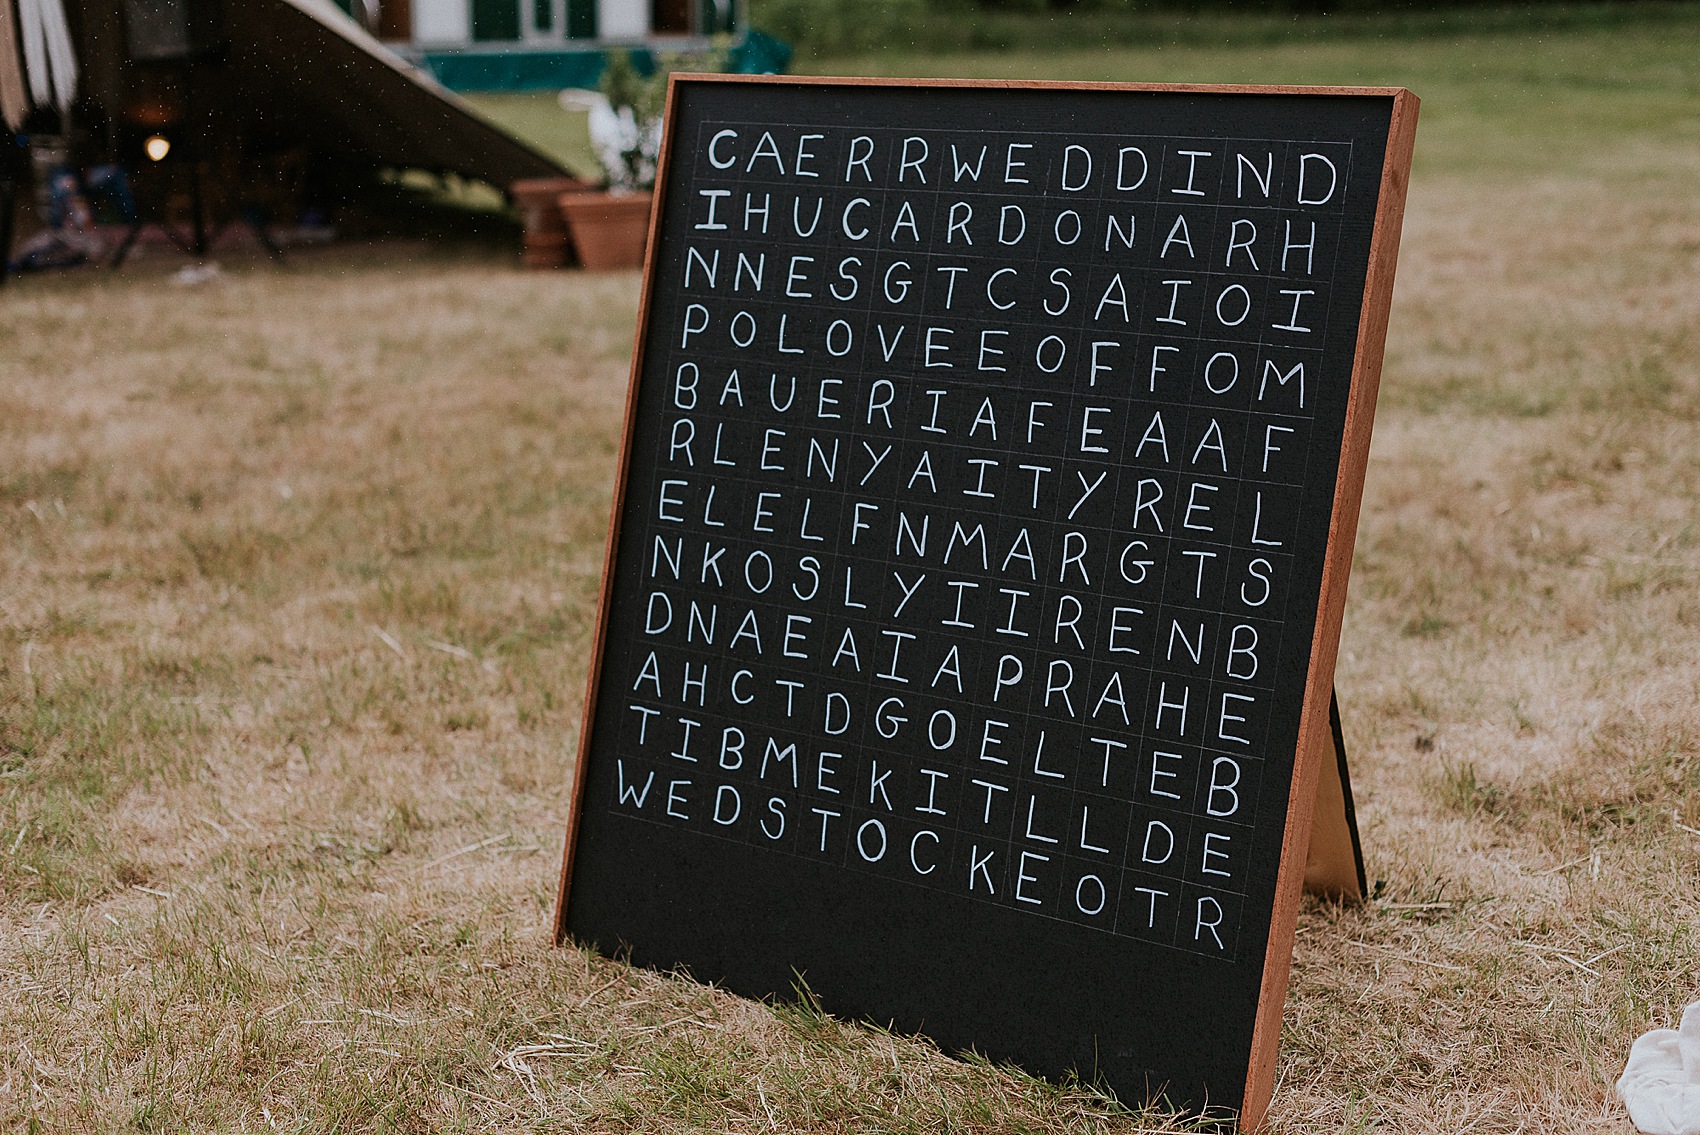 CAERRWEDDIND
IHUCARDONARH
NNESGTCSAIOI
POLOVEEOFFOM
BAUERIAFEAAF
RLENYAITYREL
ELELFNMARGTS
NKOSLYIIRENB
DNAEAIAPRAHE
AHCTDGOELTEB
TIBMEKITLLDE
WEDSTOCKEOTR